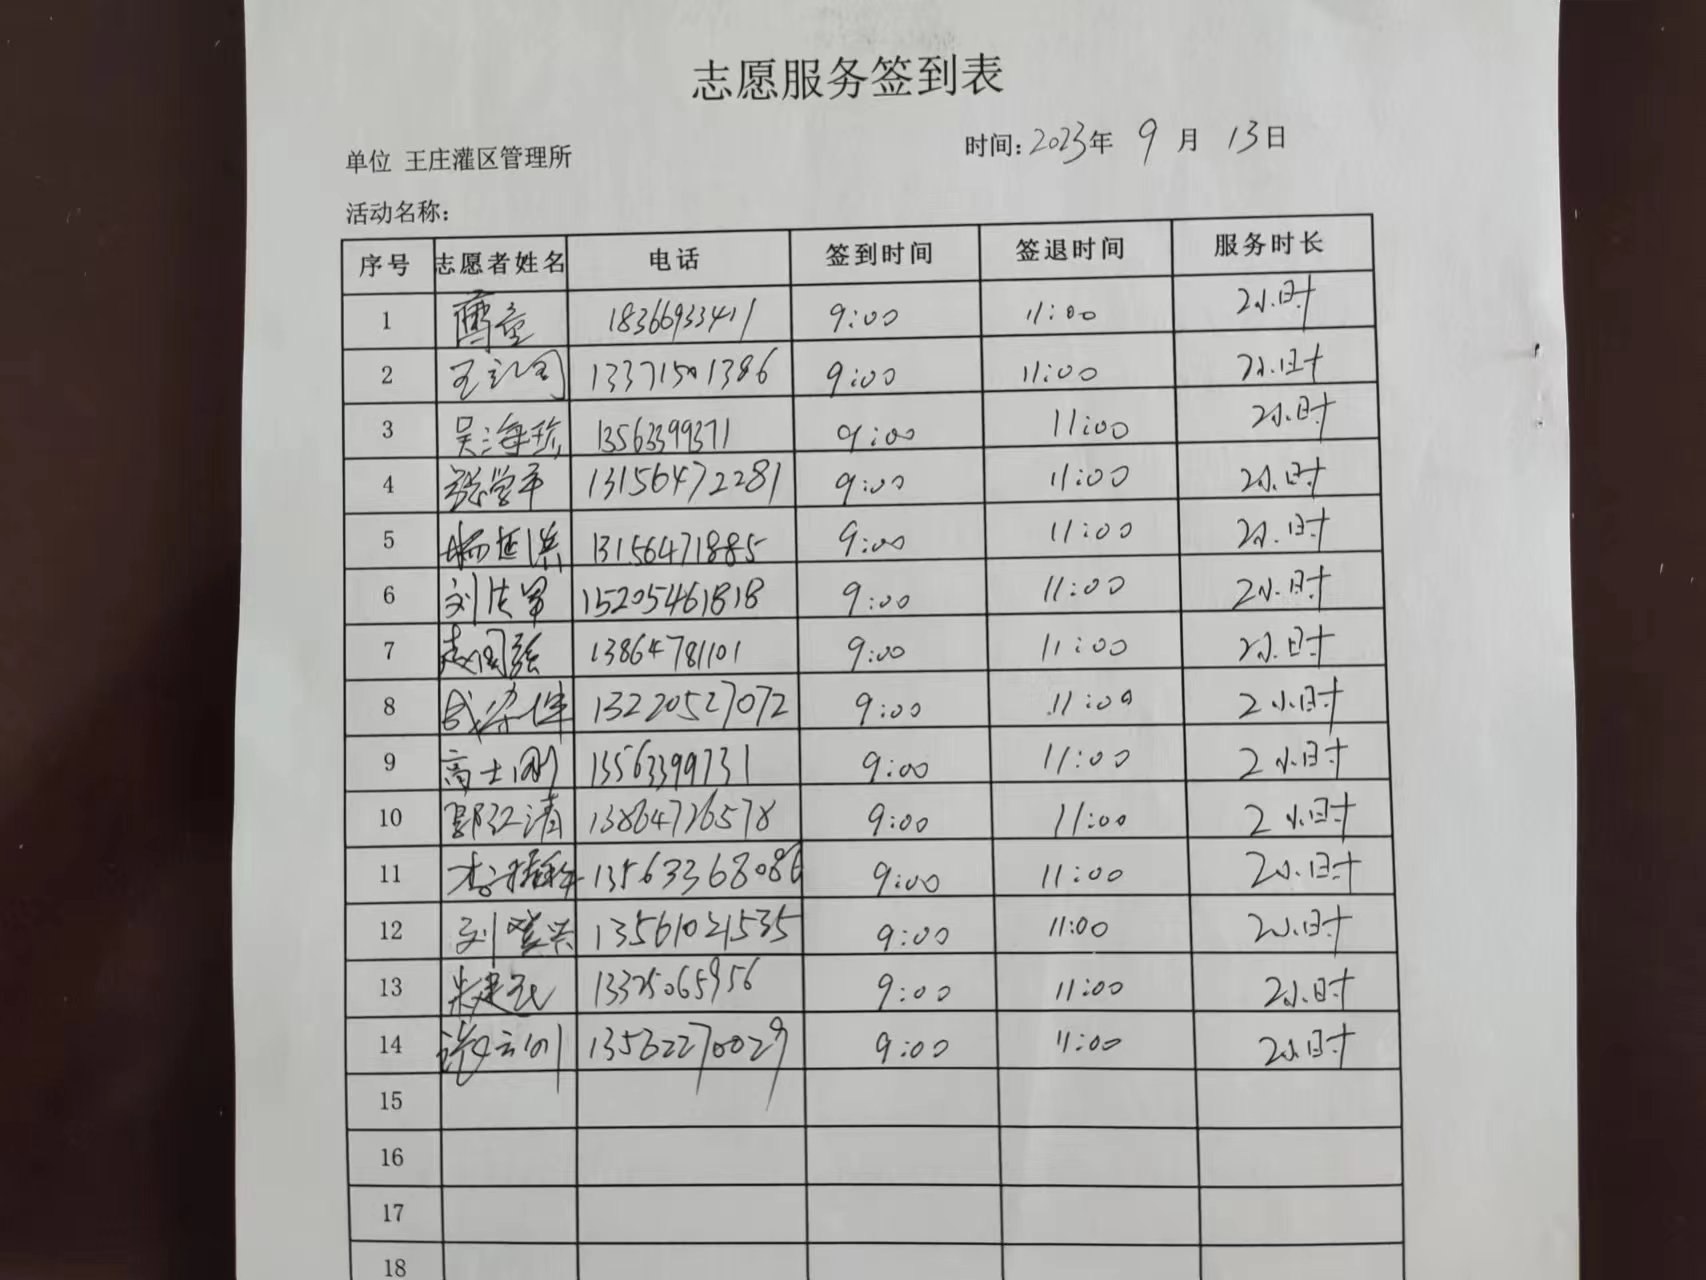 志愿服务签到表
单位 王庄灌区管理所
时间:2023年 9月 13日
活动名称:
序号 志愿者姓名 电话 签到时间 签退时间 服务时长
1 18366933411 9:00 11:00 2小时
2 13371501386 9:00 11:00 2小时
3 吴海珍 13563399371 9:00 11:00 2小时
4 张学平 13156472281 9:00 11:00 2小时
5 13156471885 9:00 11:00 2小时
6 刘法军 15205461818 9:00 11:00 2小时
7 赵国强 13864781101 9:00 11:00 2小时
8 13220527072 9:00 11:00 2小时
9 高士刚 13563399731 9:00 11:00 2小时
10 郭江清 13864726578 9:00 11:00 2小时
11 13563368086 9:00 11:00 2小时
12 刘 兴 13561021535 9:00 11:00 2小时
13 13325065956 9:00 11:00 2小时
14 13562270029 9:00 11:00 2小时
15
16
17
18